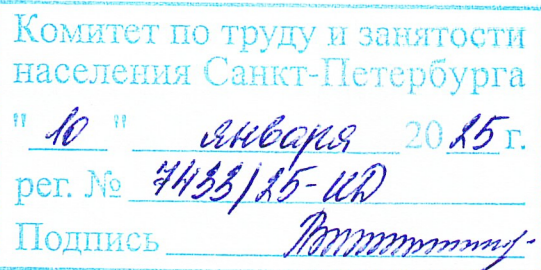 Комитет по труду и занятости
населения Санкт-Петербурга
"10" января 2025 г.
рег. № 7433/25-КД
Подпись